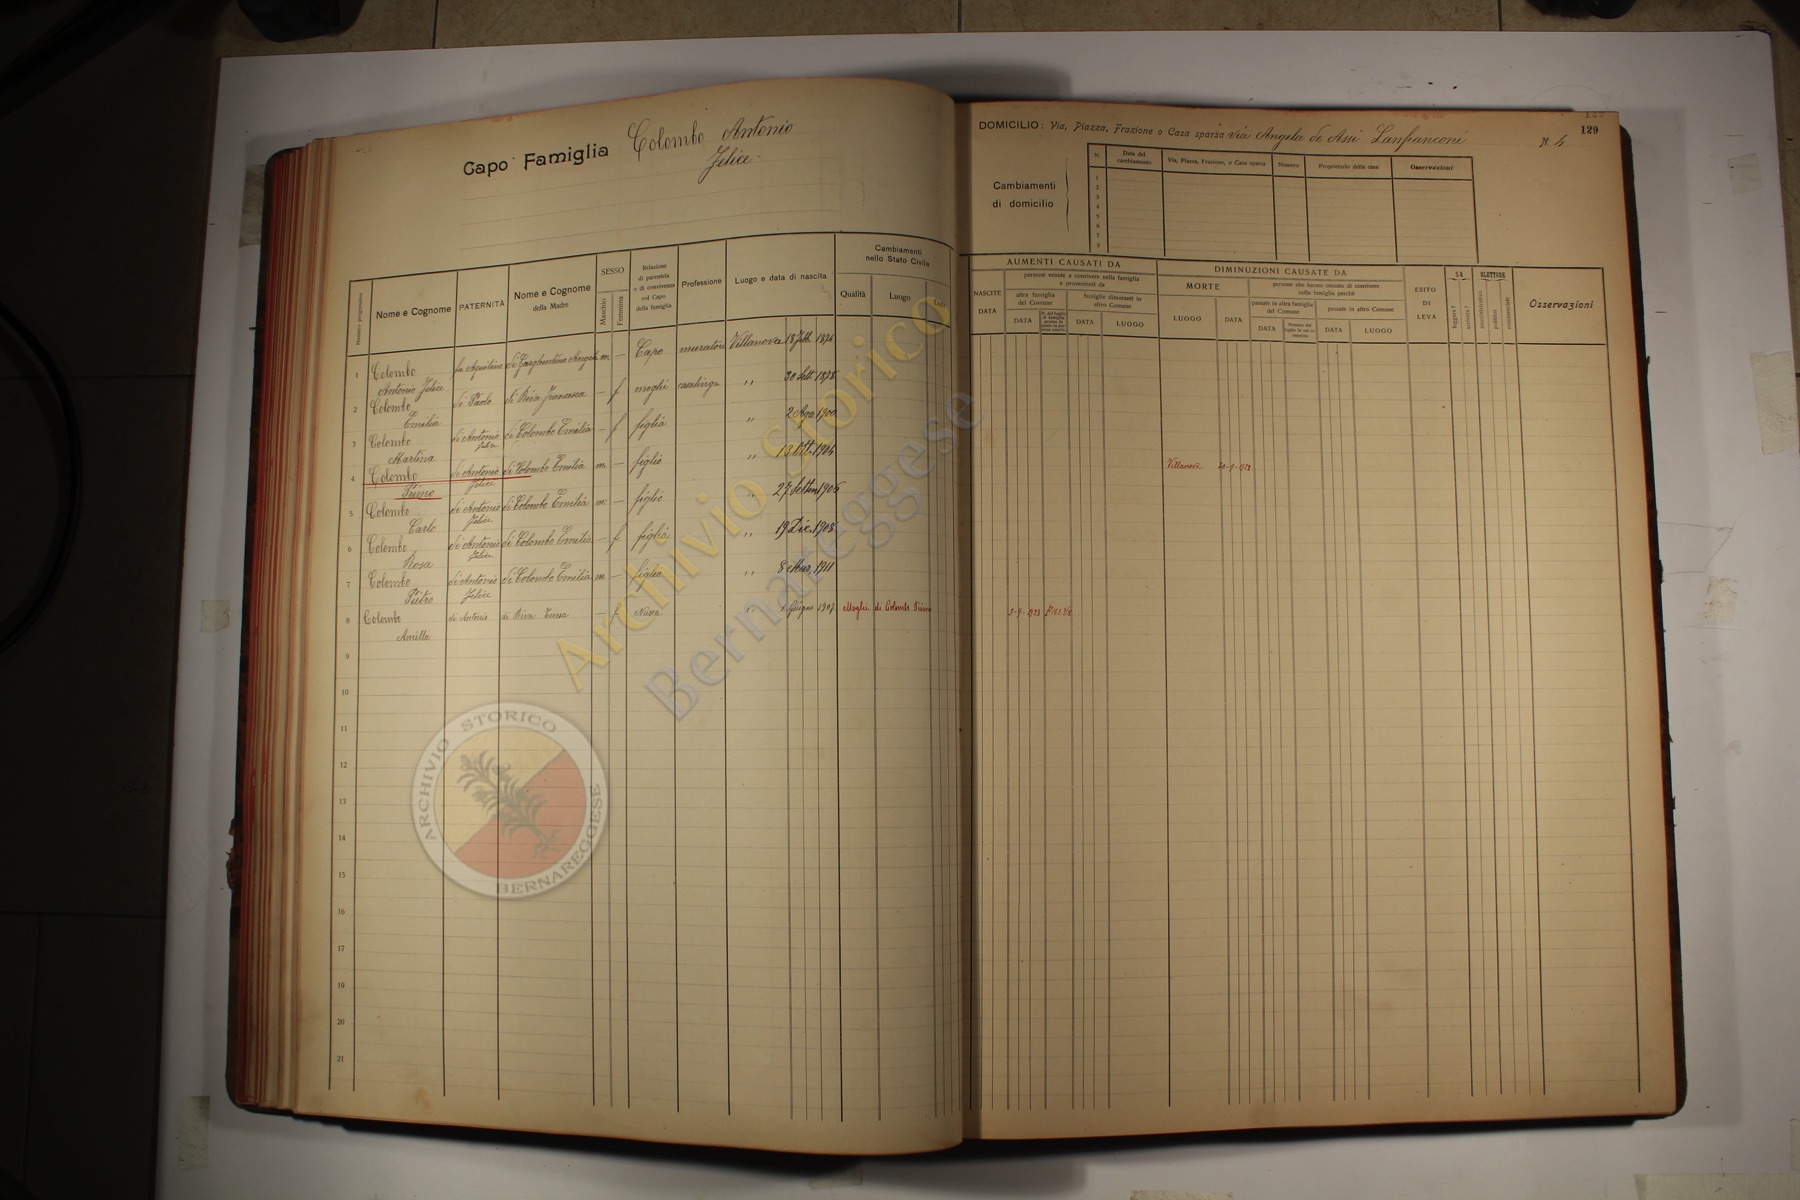 Capo Famiglia Colombo Antonio
Felice
129
DOMICILIO: Via, Piazza, Frazione o Casa sparsa Via Angela de Assi Lanfranconi N. 4
Cambiamenti di domicilio
N. Data del cambiamento Via, Piazza, Frazione, o Casa sparsa Numero Proprietario della casa Osservazioni
1
2
3
4
5
6
7
8
Numero progressivo
Nome e Cognome
PATERNITÀ
Nome e Cognome della Madre
SESSO
Maschio
Femmina
Relazione di parentela o di convivenza col Capo della famiglia
Professione
Luogo e data di nascita
Cambiamenti nello Stato Civile
Qualità
Luogo
AUMENTI CAUSATI DA
NASCITE
DATA
persone venute a convivere nella famiglia e provenienti da
altra famiglia del Comune
DATA
famiglie dimoranti in altro Comune
DATA
LUOGO
DIMINUZIONI CAUSATE DA
MORTE
LUOGO
DATA
persone che hanno cessato di convivere colla famiglia perchè
passate in altra famiglia del Comune
DATA
passate in altro Comune
DATA
LUOGO
ESITO DI LEVA
SA
leggere?
scrivere?
ELETTORE
amministrativo
politico
commerciale
Osservazioni
1 Colombo Antonio Felice fu Aquilino di Gargantino Angela m. — Capo muratore Villanova 18 Febb. 1876
2 Colombo Emilia di Paolo di Riva Francesca — f moglie casalinga " 30 Sett. 1878
3 Colombo Martina di Antonio Felice di Colombo Emilia — f figlia " 2 Ago. 1900
4 Colombo Primo di Antonio Felice di Colombo Emilia m. — figlio " 13 Ott. 1904 Villanova
5 Colombo Carlo di Antonio Felice di Colombo Emilia m. — figlio " 27 Settem 1906
6 Colombo Rosa di Antonio Felice di Colombo Emilia — f. figlia " 19 Dic. 1908
7 Colombo Pietro di Antonio Felice di Colombo Emilia m. — figlio " 8 Mar. 1911
8 Colombo Ancilla di Antonio di Riva — f Nuora " 1 Giugno 1907 Moglie di Colombo Primo
9
10
11
12
13
14
15
16
17
18
19
20
21
Archivio Storico
Bernareggese
ARCHIVIO STORICO
BERNAREGGESE